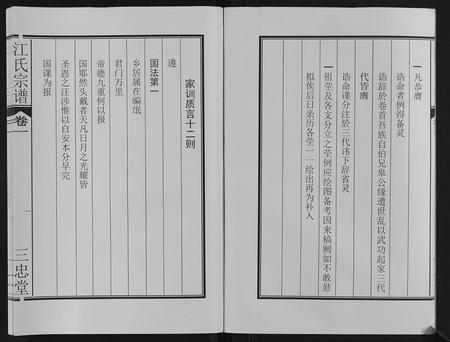 一凡恭膺
诰命者例得备灵
诰辞於卷首吾族自伯兄皋公缘遭世乱以武功起家三代
代皆膺
诰命谨分注於三代讳下辞省灵
一祖茔及各支分立之茔例应绘图备考因来稿阙如不敢悬
拟俟后日亲历各茔一一绘出再为补入
家训质言十二则
遵
国法第一
乡居属在编氓
君门万里
帝德九重何以报
国耶然头戴者天凡日月之光耀皆
圣恩之汪涉惟以自安本分早完
国课为报
江氏宗谱
卷一
一
三忠堂